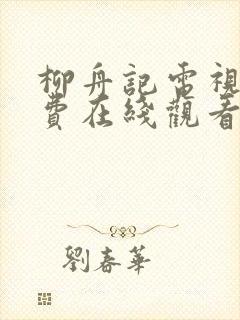 柳舟記電視
費在綫觀看
劉春華